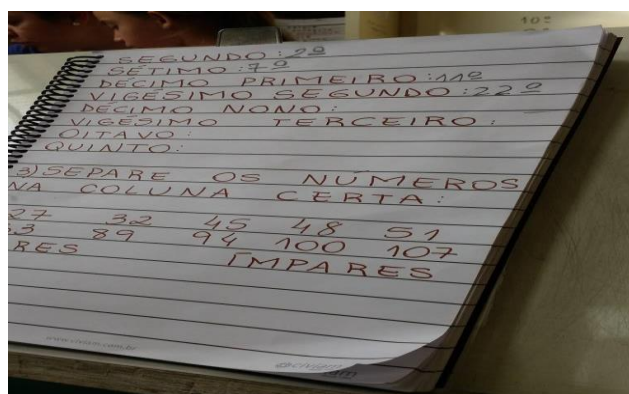 10º
SEGUNDO: 2º
SÉTIMO: 7º
DÉCIMO PRIMEIRO: 11º
VIGÉSIMO SEGUNDO: 22º
DÉCIMO NONO:
VIGÉSIMO TERCEIRO:
OITAVO:
QUINTO:
3) SEPARE OS NÚMEROS
NA COLUNA CERTA:
27 32 45 48 51
89 94 100 107
RES ÍMPARES